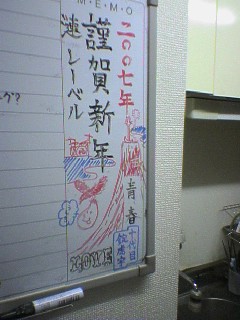 MEMO
二〇〇七年
謹賀新年
漣レーベル
青春
十代目